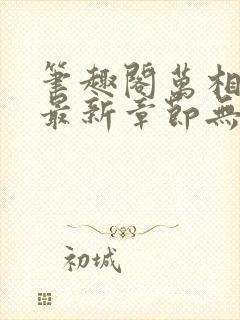 筆趣閣萬相
最新章節無
初城